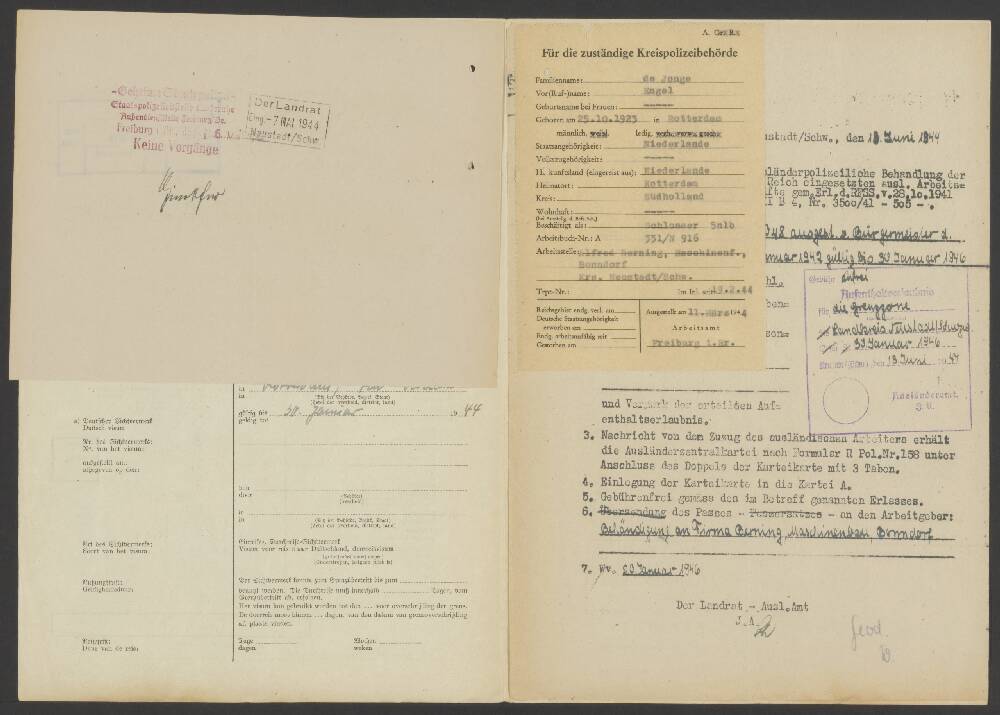 Geheime Staatspolizei
Staatspolizeileitstelle Karlsruhe
Außendienststelle Freiburg/Br.
Freiburg i. Br., den
Keine Vorgänge
Der Landrat
Eing. - 7. MAI 1944
Neustadt/Schw.
in
in
gültig bis 30. Januar 1944
geldig tot
a) Deutscher Sichtvermerk
Duitsch visum
Nr. des Sichtvermerks:
Nr. van het visum:
ausgestellt am:
afgegeven op door:
von
door
in
in
Art des Sichtvermerks:
Soort van het visum:
Einreise-, Durchreise-Sichtvermerk
Nutzungsfrist:
Geldigheidsduur:
Der Sichtvermerk konnte zum Grenzübertritt bis zum
benutzt werden. Die Durchreise muß innerhalb Tagen, vom
Grenzübertritt ab, erfolgen.
Het visum kan gebruikt worden tot den voor overschrijding der grens.
De doorreis moet binnen dagen, van den datum van grensoverschrijding
af, plaats vinden.
Reisezeit:
Duur van de reis:
Tage
dagen
Wochen
weken
Für die zuständige Kreispolizeibehörde
Familienname: de Jonge
Vor(Ruf-)name: Engel
Geburtsname bei Frauen: -----
Geboren am 25.10.1923 in Rotterdam
männlich, weibl. ledig, verh., verw., gesch.
Staatsangehörigkeit: Niederlande
Volkszugehörigkeit: -----
H. kunftsland (eingereist aus): Niederlande
Heimatort: Rotterdam
Kreis: Südholland
Wohnhaft:
Beschäftigt als: Schlosser 5a1b
Arbeitsbuch-Nr.: A 331/N 916
Arbeitsstelle: Alfred Berning, Maschinenf.,
Bonndorf
Krs. Neustadt/Schw.
Trpt-Nr.: Im Inl. seit 19.2.44
Reichsgebiet endg. verl. am
Deutsche Staatsangehörigkeit
erworben am
Endg. arbeitsunfähig seit
Gestorben am
Ausgestellt am 11. März 1944
Arbeitsamt
Freiburg i. Br.
ustadt/Schw., den 13. Juni 1944
länderpolizeiliche Behandlung der
Reich eingesetzten ausl. Arbeits=
fte gem. Erl.d.RFSS.v.28.10.1941
II B 4, Nr. 3500/41 - 505 -.
348 ausgest. v. Bürgermeister d.
nuar 1943 gültig bis 30 Januar 1946
Gebühr enfrei
Aufenthaltserlaubnis
für die Grenzzone
Landkreis Neustadt/Schwzw.
bis 30 Januar 1946
den 13. Juni 1944
Ausländeramt.
J. V.
und Vermerk der erteilten Auf=
enthaltserlaubnis.
3. Nachricht von dem Zuzug des ausländischen Arbeiters erhält
die Ausländerzentralkartei nach Formular R Pol.Nr.158 unter
Anschluss des Doppels der Karteikarte mit 3 Tabon.
4. Einlegung der Karteikarte in die Kartei A.
5. Gebührenfrei gemäss den im Betreff genannten Erlasses.
6. Übersendung des Passes - Passersatzes - an den Arbeitgeber:
Behändigung an Firma Berning, Maschinenbau, Bonndorf
7. Wv. 20 Januar 1946
Der Landrat - Ausl.Amt
J.A.